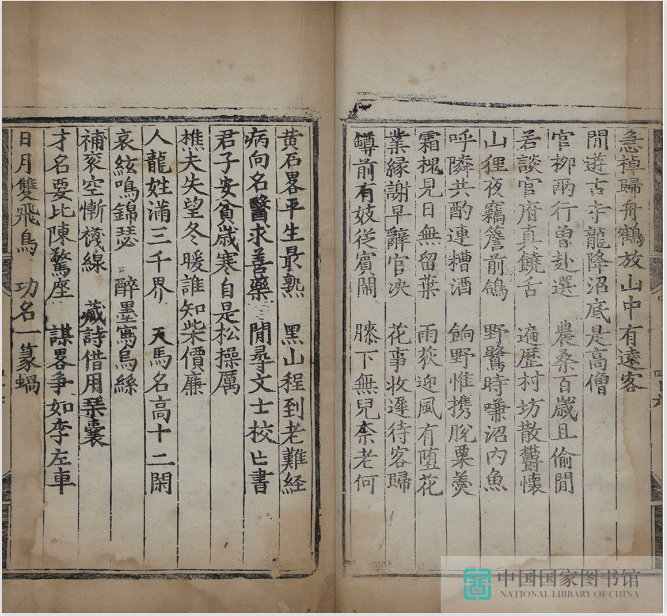 急棹歸舟鶴放山中有遠客
閒遊古寺龍降沼底是高僧
官柳兩行曾赴選 農桑百歲且偷閒
若談官府真饒舌 遍歷村坊散鬱懷
山狸夜竊簷前鴿 野鷺時嗛沼內魚
呼隣共酌連糟酒 餉野惟携脫粟羹
霜槐見日無留葉 雨荻迎風有墮花
業緣謝早辭官决 花事收遲待客歸
罇前有妓從賓鬧 膝下無兒柰老何
黄石畧平生最熟 黑山程到老難経
病向名醫求善藥 閒尋文士校亡書
君子安貧歲寒自是松操厲
樵夫失望冬暖誰知柴價廉
人龍姓滿三千界 天馬名高十二閑
哀絃鳴錦瑟 醉墨寫烏絲
補衮空慚襪線 藏詩借用琹囊
才名要比陳驚座 謀畧爭如李左車
日月雙飛鳥 功名一篆蝸
中国国家图书馆
NATIONAL LIBRARY OF CHINA